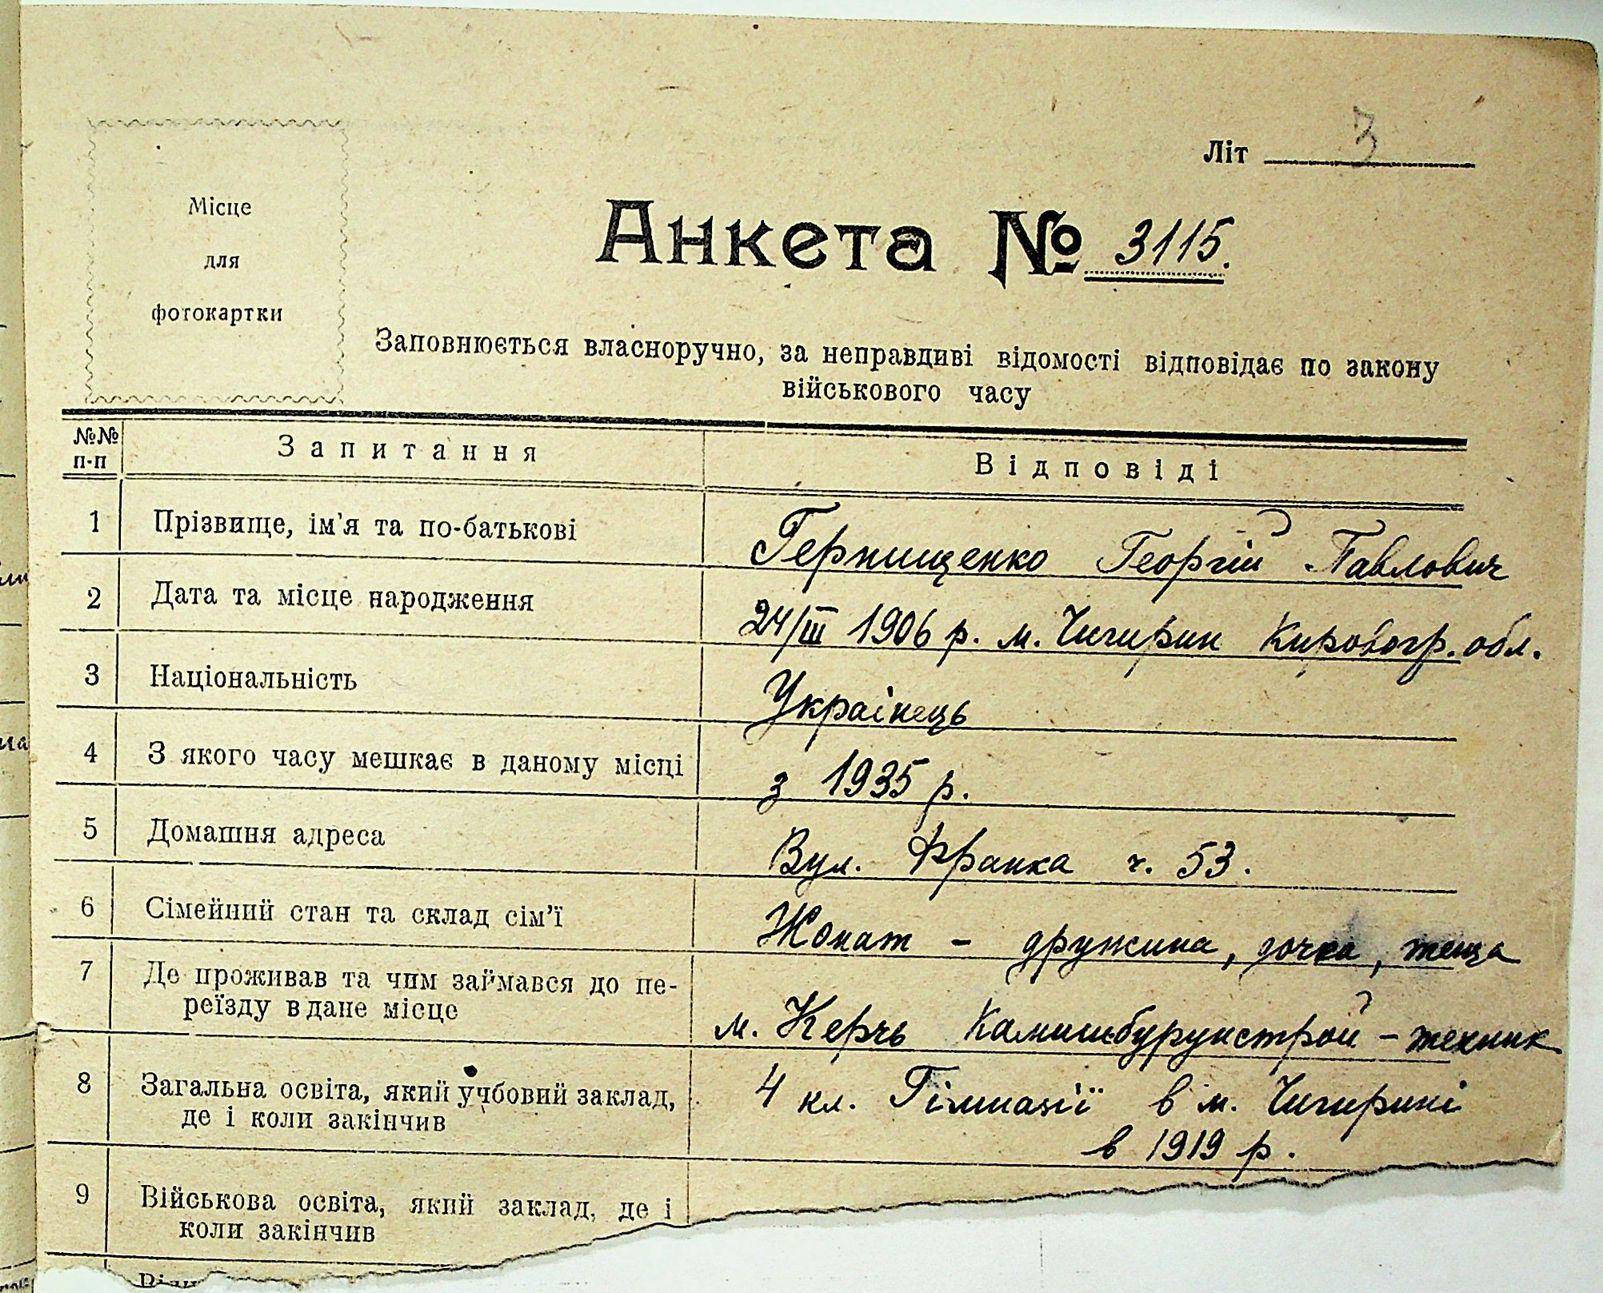 Місце
для
фотокартки
Літ 3
Анкета № 3115.
Заповнюється власноручно, за неправдиві відомості відповідає по закону
військового часу
№№ п-п Запитання Відповіді
1 Прізвище, ім'я та по-батькові Герпищенко Георгій Павлович
2 Дата та місце народження 24/III 1906 р. м. Чигирин Кировогр. обл.
3 Національність Українець
4 З якого часу мешкає в даному місці з 1935 р.
5 Домашня адреса Вул. Франка ч. 53.
6 Сімейний стан та склад сім'ї Жонат - дружина, дочка, теща
7 Де проживав та чим займався до пе-
реїзду в дане місце м. Керчь Камишбурунстрой - технік
8 Загальна освіта, який учбовий заклад, 4 кл. Гімназії в м. Чигирині
де і коли закінчив в 1919 р.
9 Військова освіта, який заклад, де і
коли закінчив